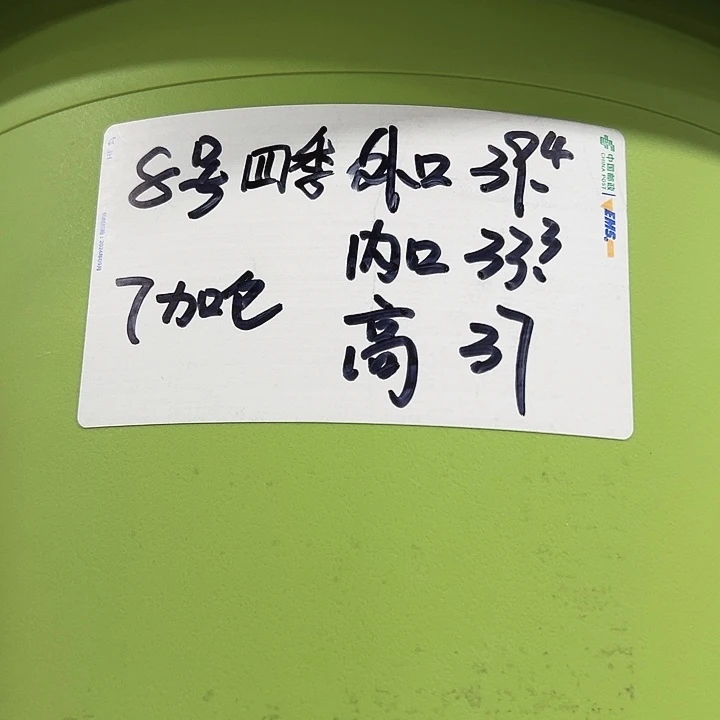 8号 四季 外口 39.4
内口 33.3
7加仑
高 37
中国邮政
CHINA POST
EMS